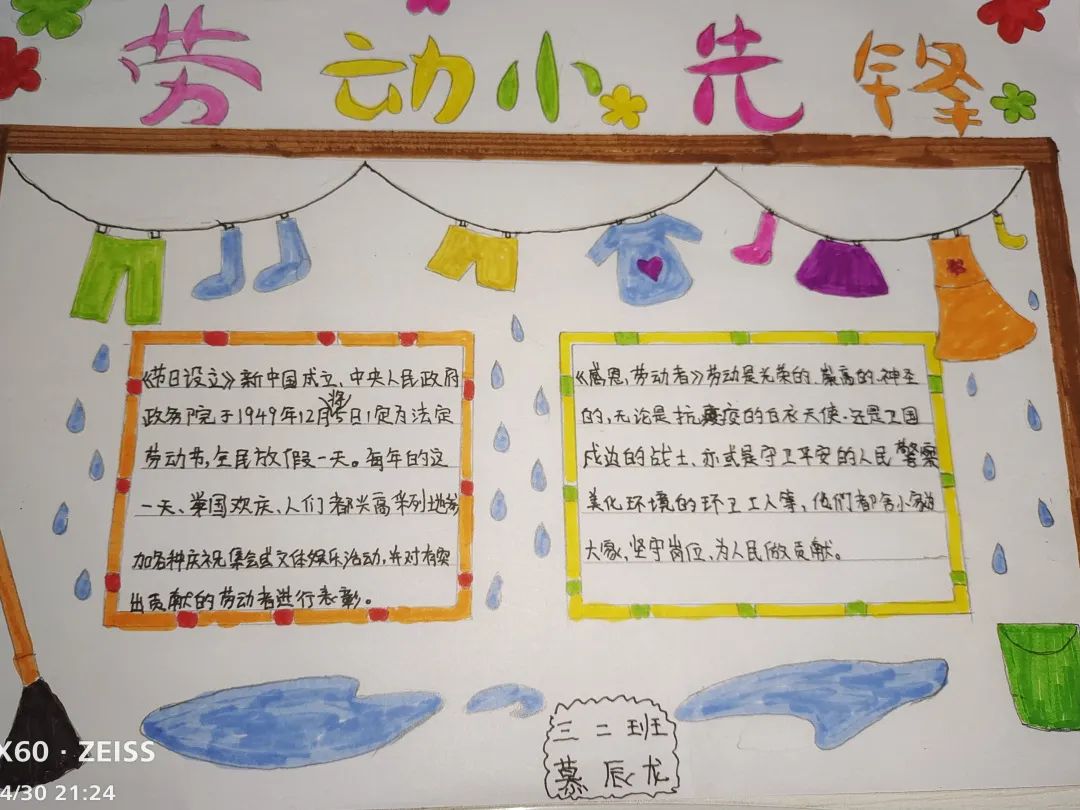 劳动小先锋
《节日设立》新中国成立、中央人民政府
政务院于1949年12月将5日1定为法定
劳动节,全民放假一天。每年的这
一天、举国欢庆、人们都兴高采列地参
加各种庆祝集会或文体娱乐活动,并对有突
出贡献的劳动者进行表彰。
《感恩,劳动者》劳动是光荣的、崇高的、神圣
的,无论是抗疫的白衣天使、还是卫国
戍边的战士、亦或是守卫平安的人民警察
美化环境的环卫工人等,他们都舍小家为
大家,坚守岗位、为人民做贡献。
三二班
慕辰龙
X60 · ZEISS
4/30 21:24